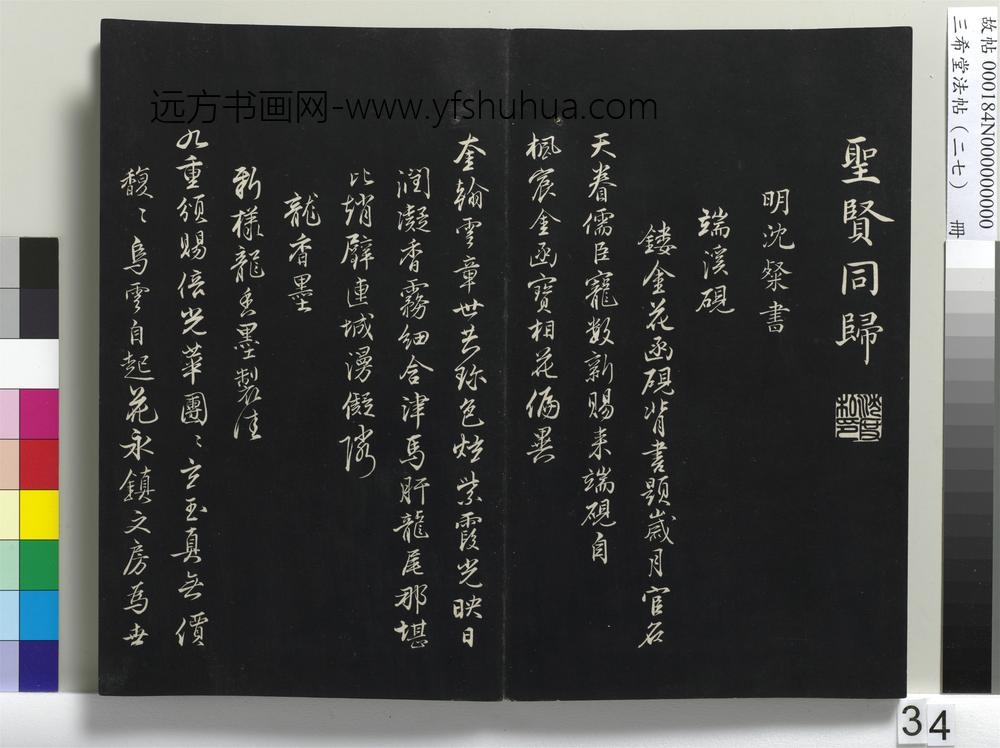 故帖 000184N000000000
三希堂法帖（二七） 冊
聖賢同歸
明沈粲書
端溪硯
鏤金花函硯背書題歲月官名
天眷儒臣寵數新賜来端硯自
楓宸金函寶相花偏異
奎翰雲章世共珎色炫紫霞光映日
潤凝香霧細含津馬肝龍尾那堪
比趙璧連城漫儗隣
龍香墨
新様龍香墨製佳
九重頒賜倍光華團〻立玉真無價
馥〻烏雲自起花永鎮文房為世
远方书画网-www.yfshuhua.com
34